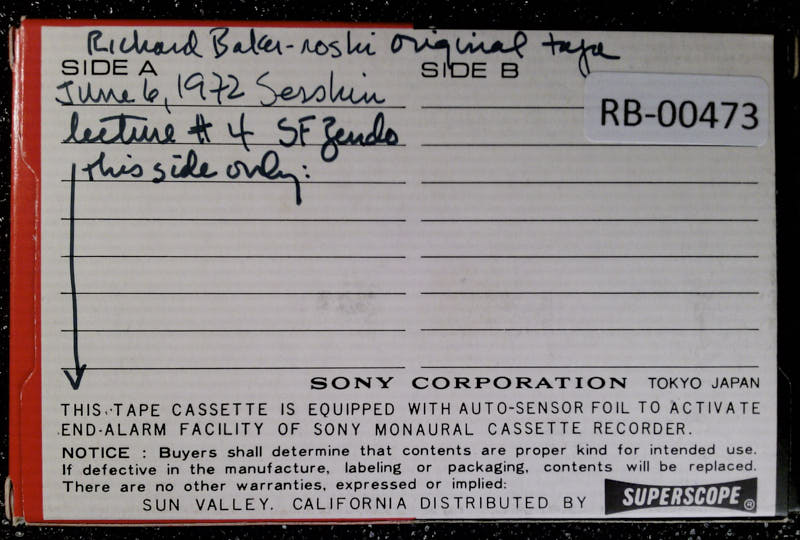 Richard Baker-roshi original tape
SIDE A
SIDE B
June 6, 1972 Sesshin
lecture # 4 SF Zendo
this side only:
RB-00473
SONY CORPORATION TOKYO JAPAN
THIS TAPE CASSETTE IS EQUIPPED WITH AUTO-SENSOR FOIL TO ACTIVATE
END-ALARM FACILITY OF SONY MONAURAL CASSETTE RECORDER.
NOTICE : Buyers shall determine that contents are proper kind for intended use.
If defective in the manufacture, labeling or packaging, contents will be replaced.
There are no other warranties, expressed or implied:
SUN VALLEY. CALIFORNIA DISTRIBUTED BY SUPERSCOPE®